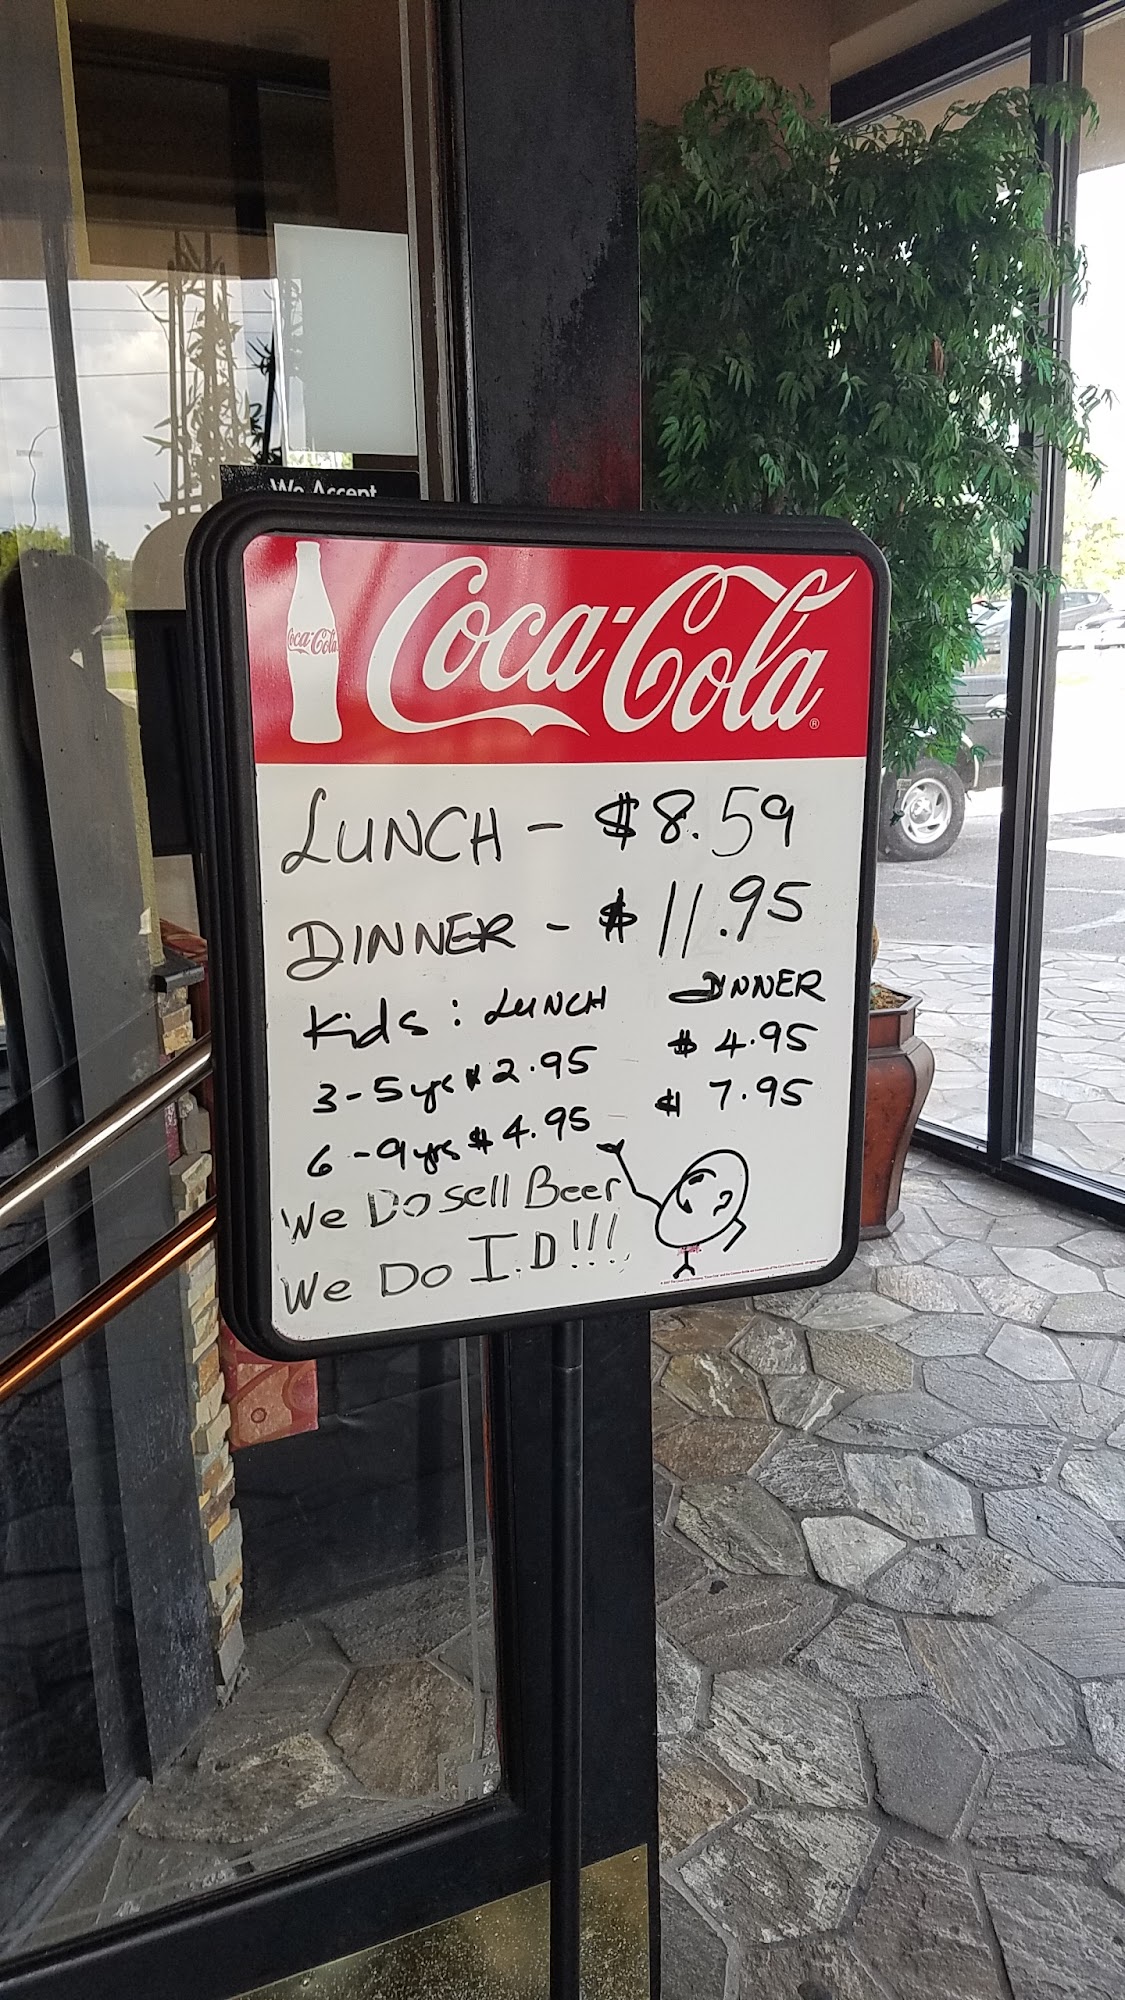 We Accept
Coca-Cola
Coca-Cola®
LUNCH - $8.59
DINNER - $11.95
Kids: LUNCH DINNER
3-5yrs $2.95 $4.95
6-9yrs $4.95 $7.95
We Do Sell Beer
We Do I.D!!!